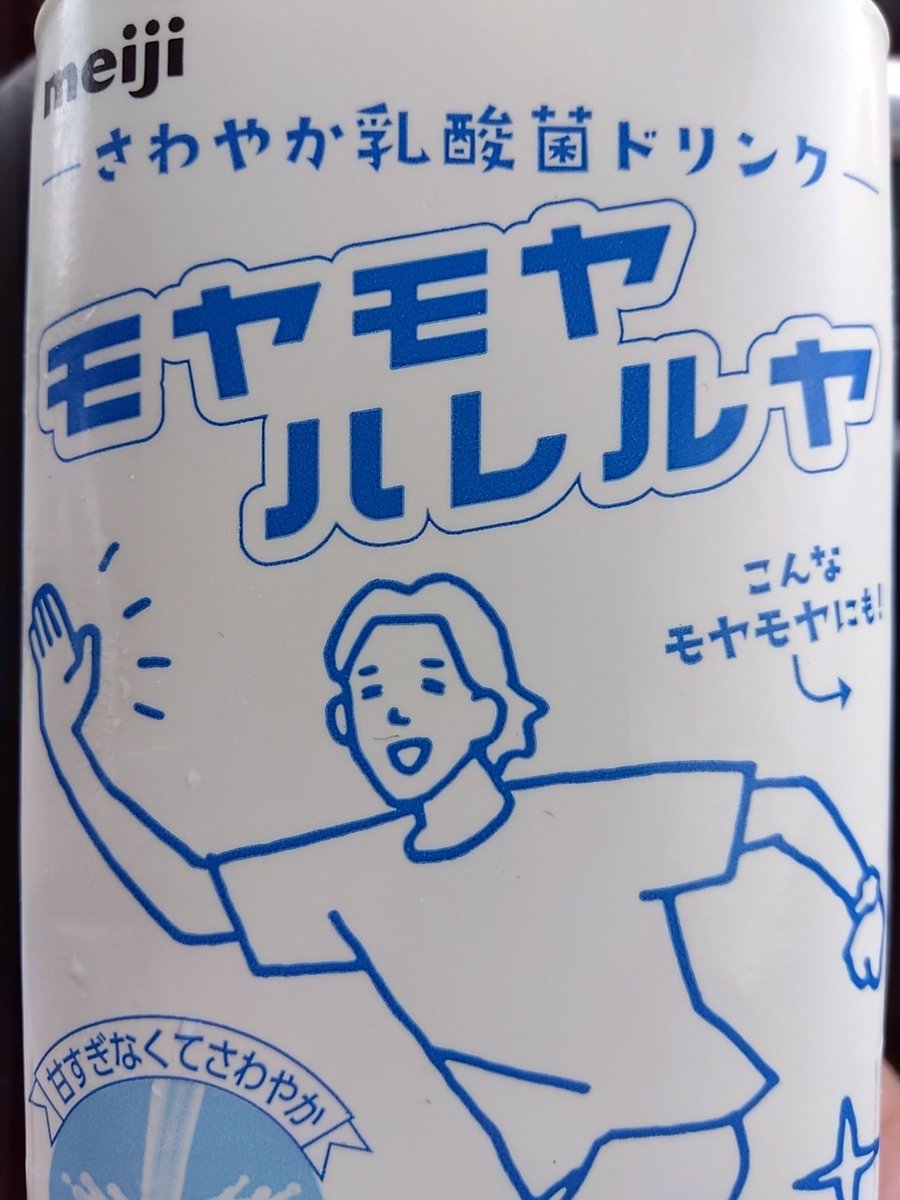 meiji
さわやか乳酸菌ドリンク
モヤモヤ
ハレルヤ
こんな
モヤモヤにも!
甘すぎなくてさわやか